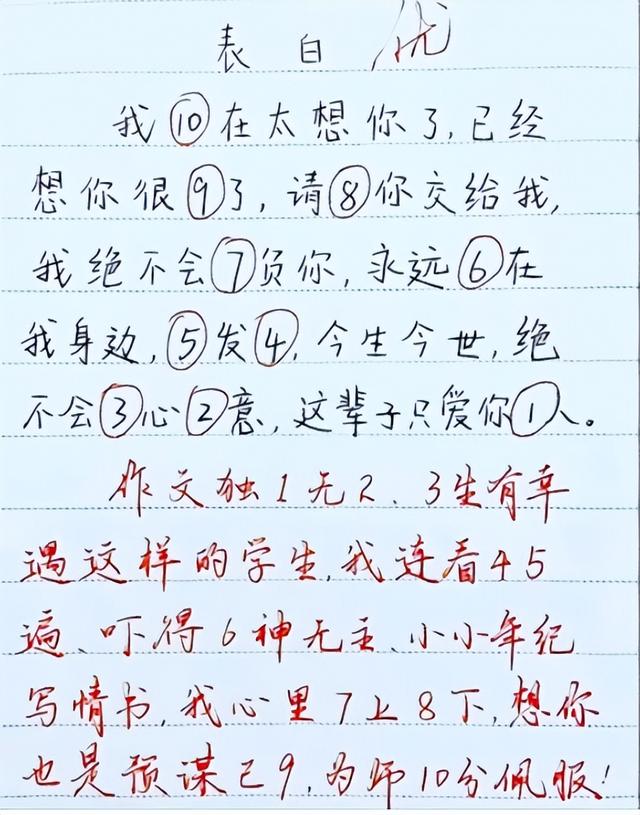 表白 优
我⑩在太想你了,已经
想你很⑨了,请⑧你交给我,
我绝不会⑦负你,永远⑥在
我身边,⑤发④,今生今世,绝
不会③心②意,这辈子只爱你①人。
作文独1无2、3生有幸
遇这样的学生,我连看45
遍、吓得6神无主、小小年纪
写情书,我心里7上8下,想你
也是预谋已9,为师10分佩服!